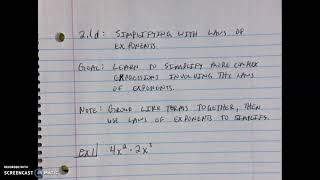 2.1d: SIMPLIFYING WITH LAWS OF
EXPONENTS.
GOAL: LEARN TO SIMPLIFY MORE COMPLEX
EXPRESSIONS INVOLVING THE LAWS
OF EXPONENTS.
NOTE: GROUP LIKE TERMS TOGETHER, THEN
USE LAWS OF EXPONENTS TO SIMPLIFY.
ex1) 4x² · 2x³
RECORDED WITH
SCREENCAST MATIC